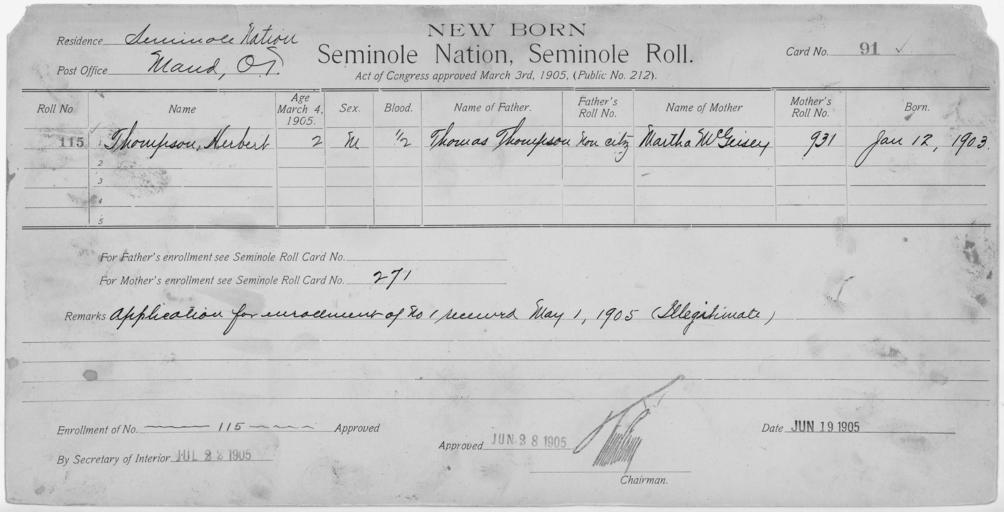 NEW BORN
Residence Seminole Nation
Seminole Nation, Seminole Roll.
Card No. 91 ✓
Post Office Maud, O.T.
Act of Congress approved March 3rd, 1905, (Public No. 212).
Roll No. Name Age March 4, 1905. Sex. Blood. Name of Father. Father's Roll No. Name of Mother Mother's Roll No. Born.
115 1 Thompson, Herbert 2 M 1/2 Thomas Thompson Non citz Martha McGeisey 931 Jan 12, 1903.
2
3
4
5
For Father's enrollment see Seminole Roll Card No.
For Mother's enrollment see Seminole Roll Card No. 271
Remarks Application for enrollment of No 1 received May 1, 1905 (Illegitimate)
Enrollment of No. 115 Approved
Date JUN 19 1905
Approved JUN 28 1905
By Secretary of Interior JUL 22 1905
Chairman.